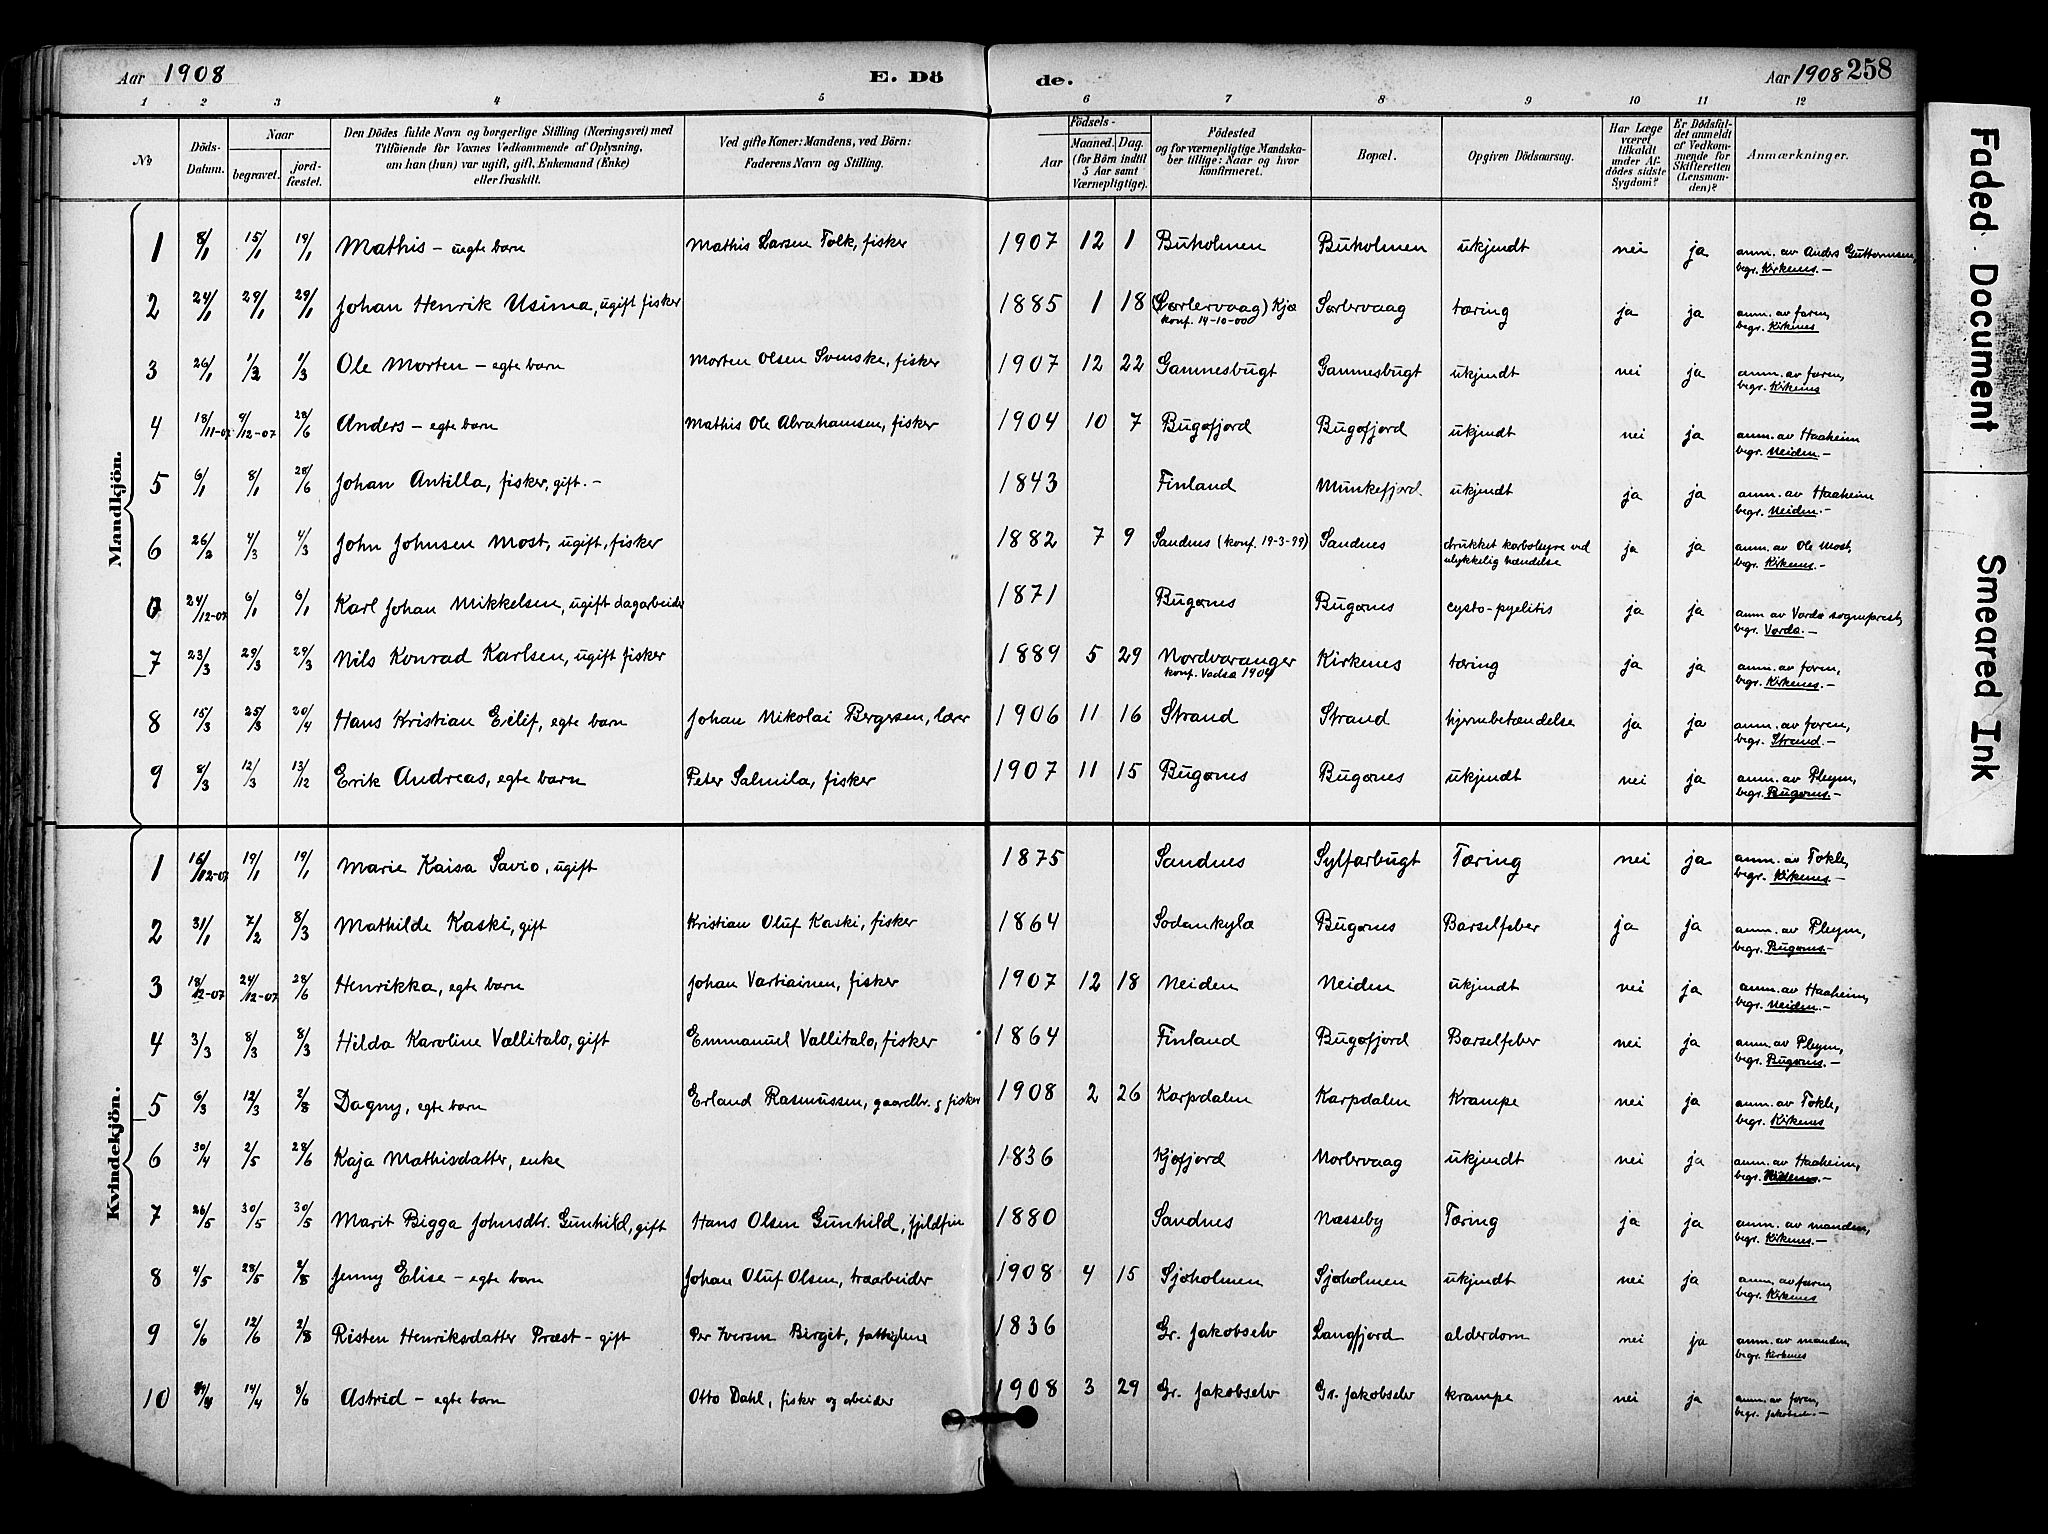 Aar 1908 E. Dö de. Aar 1908 258
1 2 3 4 5 6 7 8 9 10 11 12
No
Döds-Datum.
Naar
begravet.
jordfæstet.
Den Dödes fulde Navn og borgerlige Stilling (Næringsvei) med
Tilföiende for Voxnes Vedkommende af Oplysning,
om han (hun) var ugift, gift, Enkemand (Enke)
eller fraskilt.
Ved gifte Koner: Mandens, ved Börn:
Faderens Navn og Stilling.
Födsels-
Aar
Maaned. Dag.
(for Börn indtil
5 Aar samt
Værnepligtige).
Födested
og for værnepligtige Mandskaber tillige: Naar og hvor
konfirmeret.
Bopæl.
Opgiven Dödsaarsag.
Har Læge
været
tilkaldt
under Afdödes sidste
Sygdom?
Er Dödsfaldet anmeldt
af Vedkommende for
Skifteretten
(Lensmanden)?
Anmærkninger.
Mandkjön.
1 8/1 15/1 19/1 Mathis – uegte barn Mathis Larsen Tolk, fisker 1907 12 1 Buholmen Buholmen ukjendt nei ja anm. av Anders Guttormsen,
begr. Kirkenes. –
2 24/1 29/1 29/1 Johan Henrik Usima, ugift fisker 1885 1 18 (Sørlervaag) Kjø Sørlervaag tæring ja ja anm. av faren,
konf. 14-10-00 begr. Kirkenes
3 26/1 1/3 1/3 Ole Morten – egte barn Morten Olsen Svenske, fisker 1907 12 22 Gamnesbugt Gamnesbugt ukjendt nei ja anm. av faren,
begr. Kirkenes
4 18/11-07 9/12-07 28/6 Anders – egte barn Mathis Ole Abrahamsen, fisker 1904 10 7 Bugøfjord Bugøfjord ukjendt nei ja anm. av Haaheim
begr. Neiden. –
5 6/1 8/1 28/6 Johan Antilla, fisker, gift. – 1843 Finland Munkefjord ukjendt ja ja anm. av Haaheim
begr. Neiden. –
6 26/2 4/3 4/3 John Johnsen Most, ugift, fisker 1882 7 9 Sandnes (konf. 19-3-99) Sandnes drukket karbolsyre ved ja ja anm. av Ole Most,
ulykkelig hændelse begr. Kirkenes. –
0 24/12-07 6/1 6/1 Karl Johan Mikkelsen, ugift dagarbeider 1871 Bugønes Bugønes cysto-pyelitis ja ja anm av Vardø sogneprest,
begr. Vardø. –
7 23/3 29/3 29/3 Nils Konrad Karlsen, ugift fisker 1889 5 29 Nordvaranger Kirkenes tæring ja ja anm. av faren,
konf. Vadsø 1904 begr. Kirkenes. –
8 15/3 25/3 20/4 Hans Kristian Eilif, egte barn Johan Nikolai Bergersen, lærer 1906 11 16 Strand Strand hjernebetændelse ja ja anm. av faren,
begr. Strand. –
9 8/3 12/3 13/12 Erik Andreas, egte barn Peter Salmila, fisker 1907 11 15 Bugønes Bugønes ukjendt nei ja anm. av Pleym,
begr. Bugønes. –
Kvindekjön.
1 16/12-07 19/1 19/1 Marie Kaisa Savio, ugift 1875 Sandnes Sylfarbugt Tæring nei ja anm. av Tokle,
begr. Kirkenes. –
2 31/1 7/2 8/3 Mathilde Kaski, gift Kristian Oluf Kaski, fisker 1864 Sodankylä Bugønes Barselfeber ja ja anm. av Pleym,
begr. Bugønes. –
3 18/12-07 24/12-07 28/6 Henrikka, egte barn Johan Vartiainen, fisker 1907 12 18 Neiden Neiden ukjendt nei ja anm. av Haaheim,
begr. Neiden. –
4 3/3 8/3 8/3 Hilda Karoline Vallitalo, gift Emmanuel Vallitalo, fisker 1864 Finland Bugøfjord Barselfeber nei ja anm. av Pleym,
begr. Bugønes. –
5 6/3 12/3 2/8 Dagny, egte barn Erland Rasmussen, gaardbr. og fisker 1908 2 26 Karpdalen Karpdalen Krampe nei ja anm. av Tokle,
begr. Kirkenes
6 30/4 2/5 28/6 Kaja Mathisdatter, enke 1836 Kjøfjord Norlervaag ukjendt nei ja anm. av Haaheim,
begr.
7 26/5 30/5 30/5 Marit Bigga Johnsdtr. Gunhild, gift Hans Olsen Gunhild, fjeldfin 1880 Sandnes Næsseby Tæring ja ja anm. av manden,
begr. Kirkenes. –
8 4/5 28/5 2/8 Jenny Elise – egte barn Johan Oluf Olsen, træarbeider 1908 4 15 Sjøholmen Sjøholmen ukjendt nei ja anm. av faren,
begr. Kirkenes
9 6/6 12/6 2/8 Risten Henriksdatter Præst – gift Per Iversen Birget, fattiglem 1836 Gr. Jakobselv Langfjord alderdom nei ja anm. av manden,
begr. Kirkenes
10 14/4 8/6 Astrid – egte barn Otto Dahl, fisker og arbeider 1908 3 29 Gr. Jakobselv Gr. Jakobselv krampe nei ja anm. av faren,
begr. Jakobselv. –
Faded Document
Smeared Ink